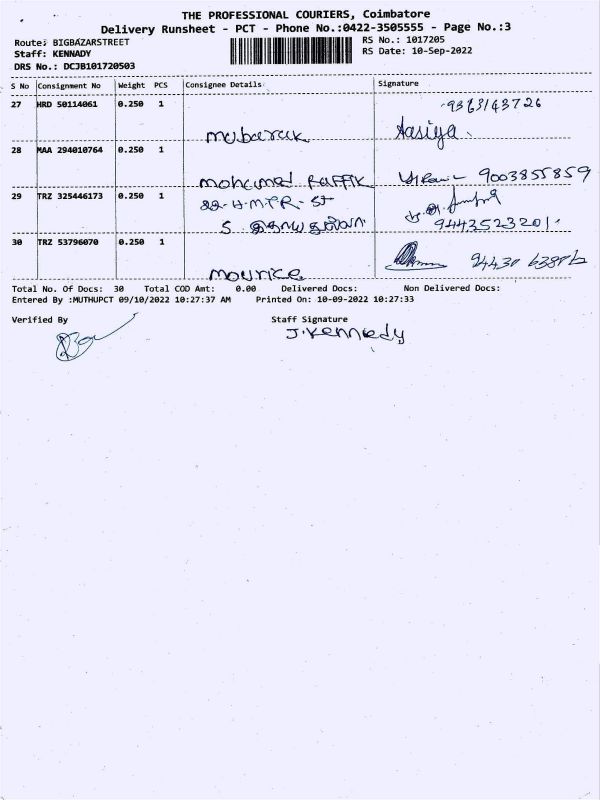 THE PROFESSIONAL COURIERS, Coimbatore
Delivery Runsheet - PCT - Phone No.:0422-3505555 - Page No.:3
Route: BIGBAZARSTREET
RS No.: 1017205
Staff: KENNADY
RS Date: 10-Sep-2022
DRS No.: DCJB101720503
S No Consignment No Weight PCS Consignee Details Signature
27 HRD 50114061 0.250 1 9363143726
mubarak Aasiya
28 MAA 294010764 0.250 1
mohamed Raffik 9003855859
29 TRZ 325446173 0.250 1 22-H.M.P.R-St
S. 9443523201
30 TRZ 53796070 0.250 1
mourice 94430 63886
Total No. Of Docs: 30 Total COD Amt: 0.00 Delivered Docs: Non Delivered Docs:
Entered By :MUTHUPCT 09/10/2022 10:27:37 AM Printed On: 10-09-2022 10:27:33
Verified By Staff Signature
J.Kennedy